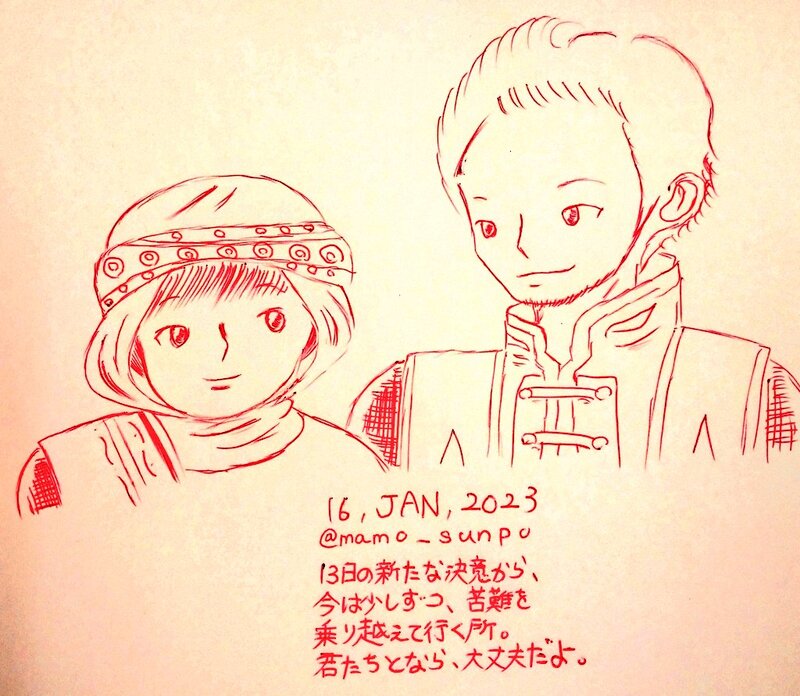 16, JAN, 2023
@mamo_sunpo
13日の新たな決意から、
今は少しずつ、苦難を
乗り越えて行く所。
君たちとなら、大丈夫だよ。